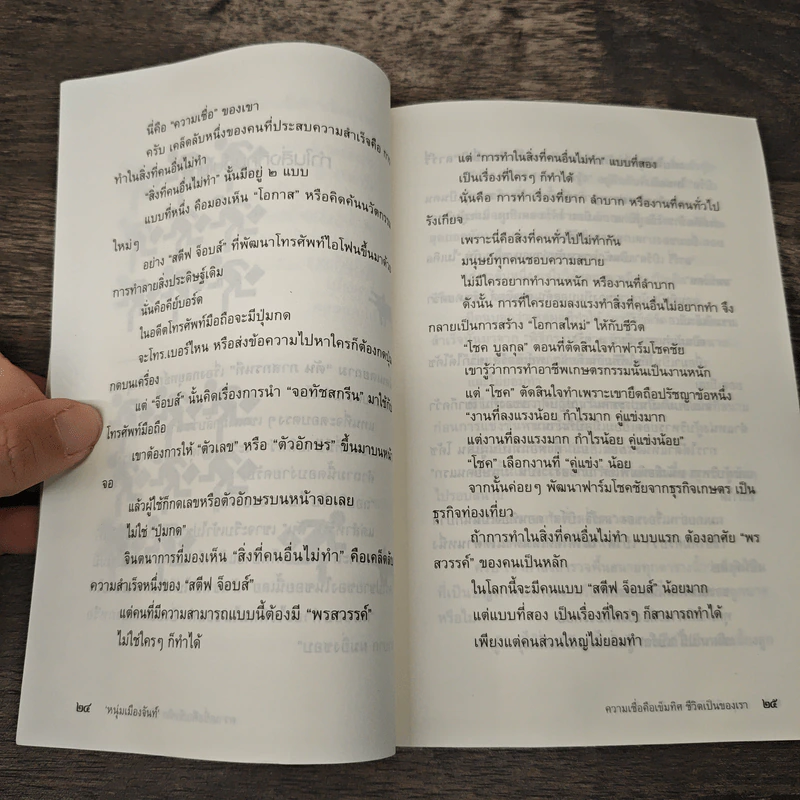 นี่คือ "ความเชื่อ" ของเขา
ครับ เคล็ดลับหนึ่งของคนที่ประสบความสำเร็จคือ การ
ทำในสิ่งที่คนอื่นไม่ทำ
"สิ่งที่คนอื่นไม่ทำ" นั้นมีอยู่ ๒ แบบ
แบบที่หนึ่ง คือมองเห็น "โอกาส" หรือคิดค้นนวัตกรรม
ใหม่ๆ
อย่าง "สตีฟ จ็อบส์" ที่พัฒนาโทรศัพท์ไอโฟนขึ้นมาด้วย
การทำลายสิ่งประดิษฐ์เดิม
นั่นคือคีย์บอร์ด
ในอดีตโทรศัพท์มือถือจะมีปุ่มกด
จะโทร.เบอร์ไหน หรือส่งข้อความไปหาใครก็ต้องกดปุ่ม
กดบนเครื่อง
แต่ "จ็อบส์" นั้นคิดเรื่องการนำ "จอทัชสกรีน" มาใช้กับ
โทรศัพท์มือถือ
เขาต้องการให้ "ตัวเลข" หรือ "ตัวอักษร" ขึ้นมาบนหน้า
จอ
แล้วผู้ใช้ก็กดเลขหรือตัวอักษรบนหน้าจอเลย
ไม่ใช่ "ปุ่มกด"
จินตนาการที่มองเห็น "สิ่งที่คนอื่นไม่ทำ" คือเคล็ดลับ
ความสำเร็จหนึ่งของ "สตีฟ จ็อบส์"
แต่คนที่มีความสามารถแบบนี้ต้องมี "พรสวรรค์"
ไม่ใช่ใครๆ ก็ทำได้
๒๔ 'หนุ่มเมืองจันท์'
แต่ "การทำในสิ่งที่คนอื่นไม่ทำ" แบบที่สอง
เป็นเรื่องที่ใครๆ ก็ทำได้
นั่นคือ การทำเรื่องที่ยาก ลำบาก หรืองานที่คนทั่วไป
รังเกียจ
เพราะนี่คือสิ่งที่คนทั่วไปไม่ทำกัน
มนุษย์ทุกคนชอบความสบาย
ไม่มีใครอยากทำงานหนัก หรืองานที่ลำบาก
ดังนั้น การที่ใครยอมลงแรงทำสิ่งที่คนอื่นไม่อยากทำ จึง
กลายเป็นการสร้าง "โอกาสใหม่" ให้กับชีวิต
"โชค บูลกุล" ตอนที่ตัดสินใจทำฟาร์มโชคชัย
เขารู้ว่าการทำอาชีพเกษตรกรรมนั้นเป็นงานหนัก
แต่ "โชค" ตัดสินใจทำเพราะเขายึดถือปรัชญาข้อหนึ่ง
"งานที่ลงแรงน้อย กำไรมาก คู่แข่งมาก
แต่งานที่ลงแรงมาก กำไรน้อย คู่แข่งน้อย"
"โชค" เลือกงานที่ "คู่แข่ง" น้อย
จากนั้นค่อยๆ พัฒนาฟาร์มโชคชัยจากธุรกิจเกษตร เป็น
ธุรกิจท่องเที่ยว
ถ้าการทำในสิ่งที่คนอื่นไม่ทำ แบบแรก ต้องอาศัย "พร
สวรรค์" ของคนเป็นหลัก
ในโลกนี้จะมีคนแบบ "สตีฟ จ็อบส์" น้อยมาก
แต่แบบที่สอง เป็นเรื่องที่ใครๆ ก็สามารถทำได้
เพียงแต่คนส่วนใหญ่ไม่ยอมทำ
ความเชื่อคือเข็มทิศ ชีวิตเป็นของเรา ๒๕